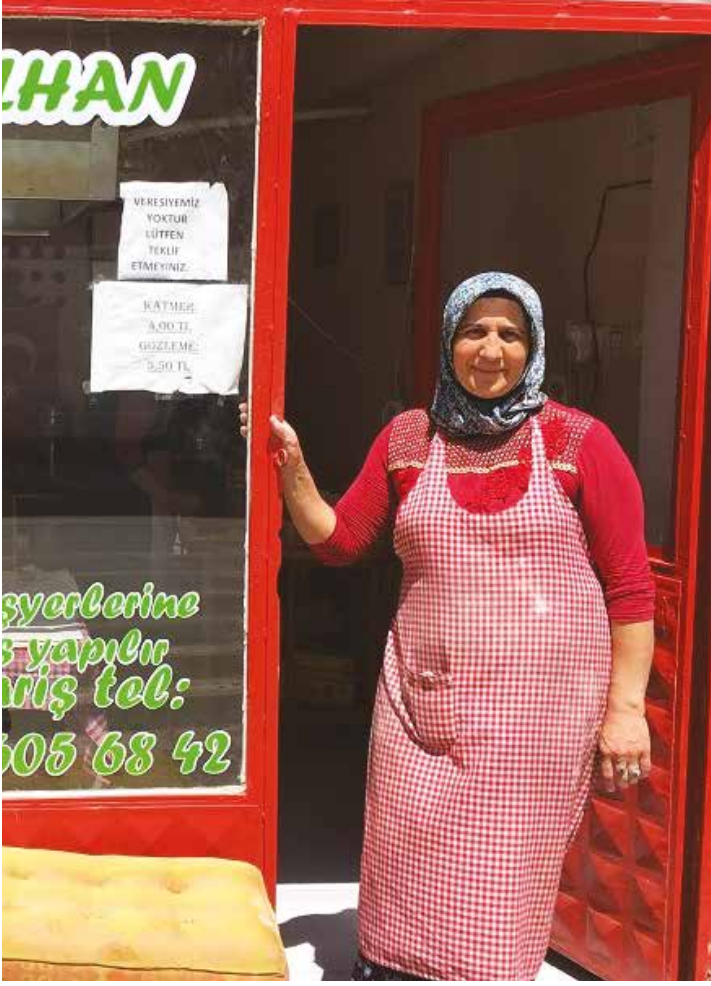 LHAN
VERESİYEMİZ
YOKTUR
LÜTFEN
TEKLİF
ETMEYİNİZ.
KATMER:
4,00 TL
GÖZLEME:
5,50 TL
şyerlerine
s yapılır
riş tel:
605 68 42